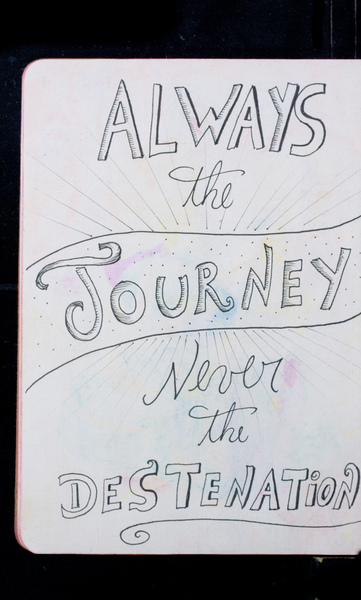 ALWAYS
the
JOURNEY
Never
the
DESTENATiON